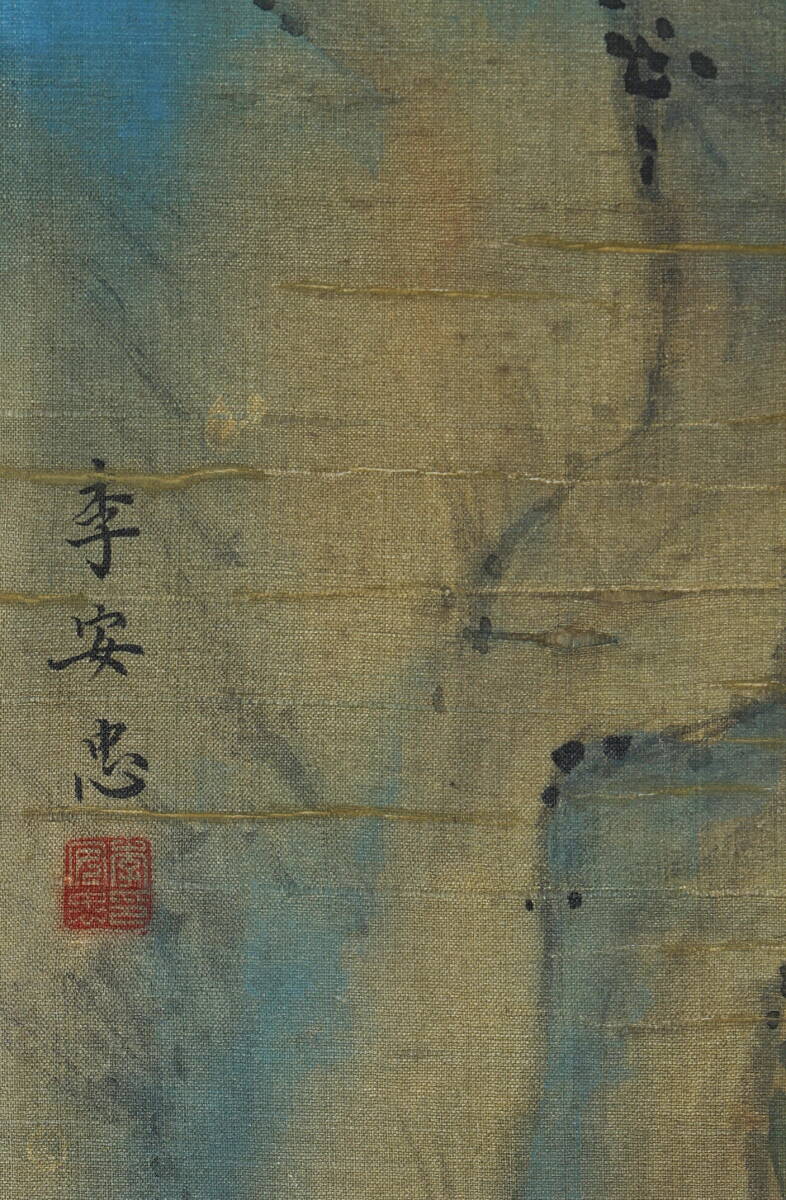 李安忠